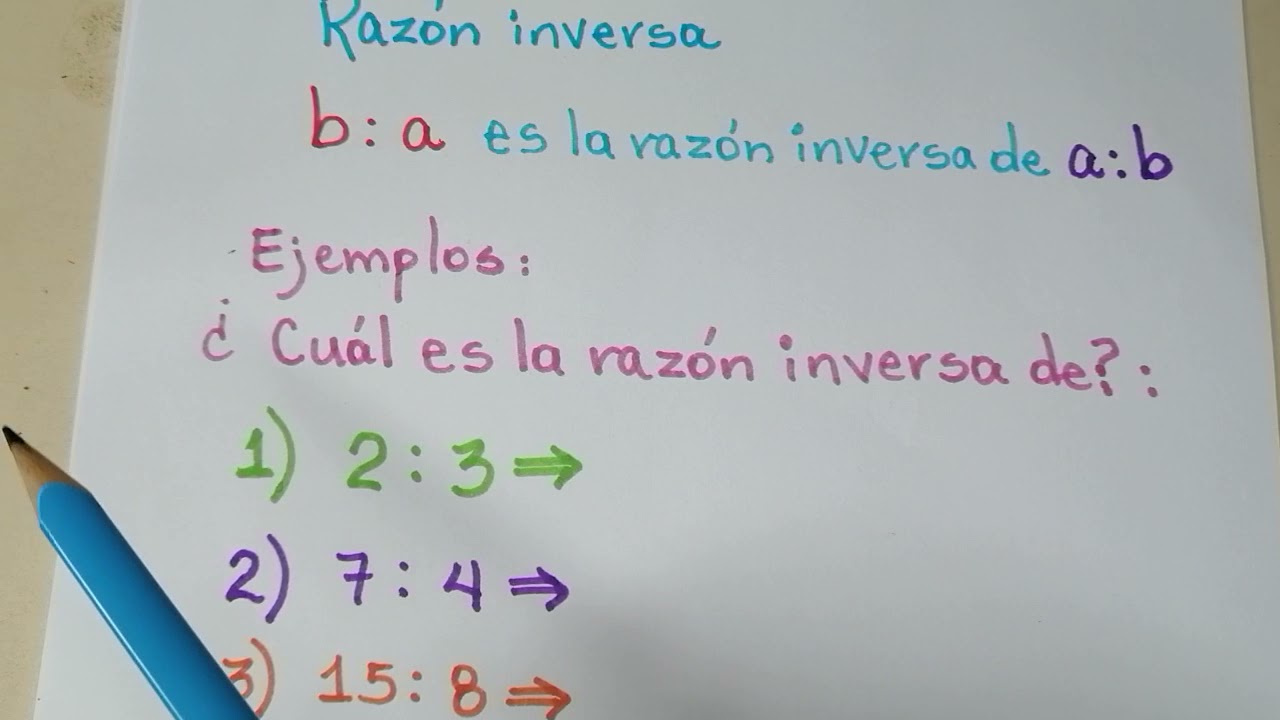 Razón inversa
b: a es la razón inversa de a:b
Ejemplos:
¿ Cuál es la razón inversa de?:
1) 2:3⇒
2) 7:4⇒
3) 15:8⇒